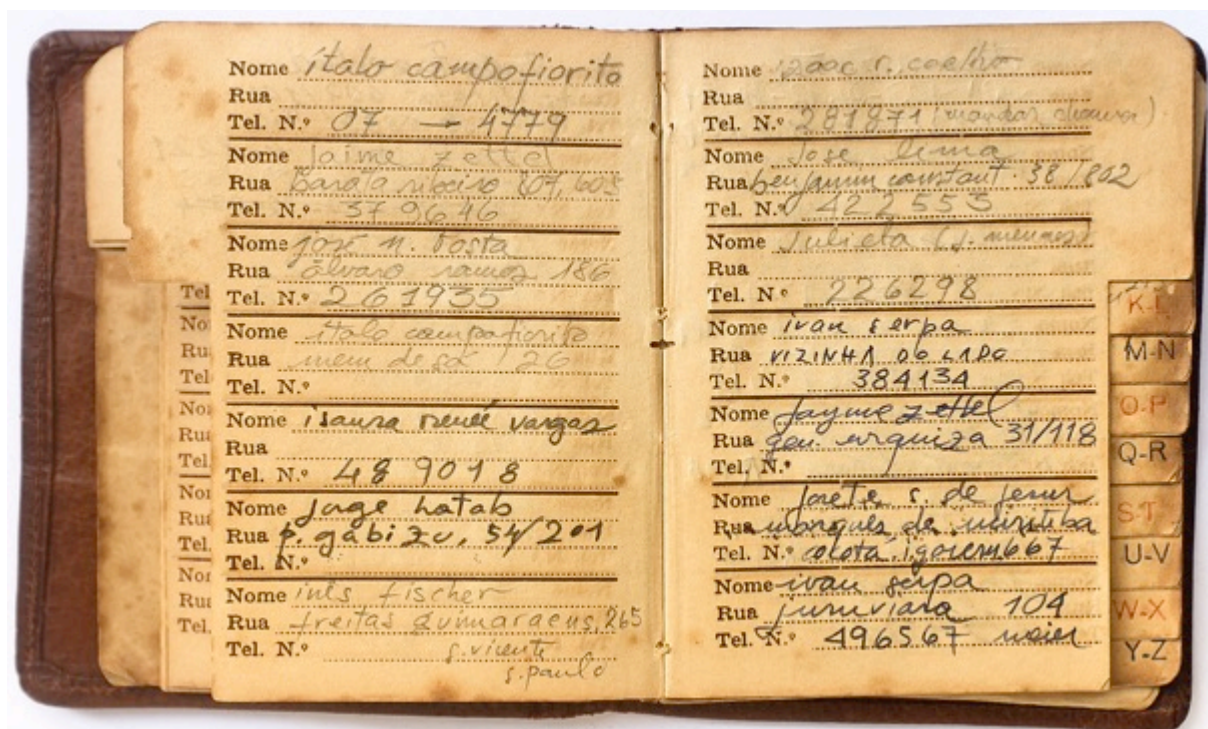 Nome ítalo campofiorito
Rua
Tel. N.º 07 → 4779
Nome jaime zettel
Rua barata ribeiro 807, 605
Tel. N.º 379646
Nome josé n. bosta
Rua álvaro ramos 186
Tel. N.º 261935
Nome ítalo campofiorito
Rua mem de sá 26
Tel. N.º
Nome isaura reneé vargas
Rua
Tel. N.º 48 9018
Nome jorge hatab
Rua p. gabizu, 54/201
Tel. N.º
Nome inês fischer
Rua freitas guimaraens, 265
Tel. N.º s. vicente
s. paulo
Tel
No
Ru
Tel
No
Ru
Tel
Nor
Rua
Tel.
Nor
Rua
Tel.
Nome r. coelho
Rua
Tel. N.º 281871 (mandar chamar)
Nome jose lima
Rua benjamin constant. 38/802
Tel. N.º 422553
Nome Julieta
Rua
Tel. N.º 226298
Nome ivan serpa
Rua VIZINHA DO LADO
Tel. N.º 384134
Nome jayme zettel
Rua gen. urquiza 31/118
Tel. N.º
Nome josete s. de jesus
Rua marques de muritiba
Tel. N.º cocotá. 667
Nome ivan serpa
Rua juruviara 104
Tel. N.º 496567 meier
K-L
M-N
O-P
Q-R
S-T
U-V
W-X
Y-Z